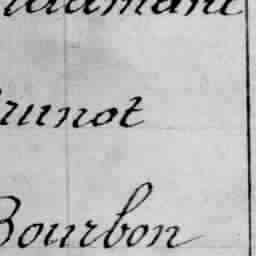 Brunot
Bourbon